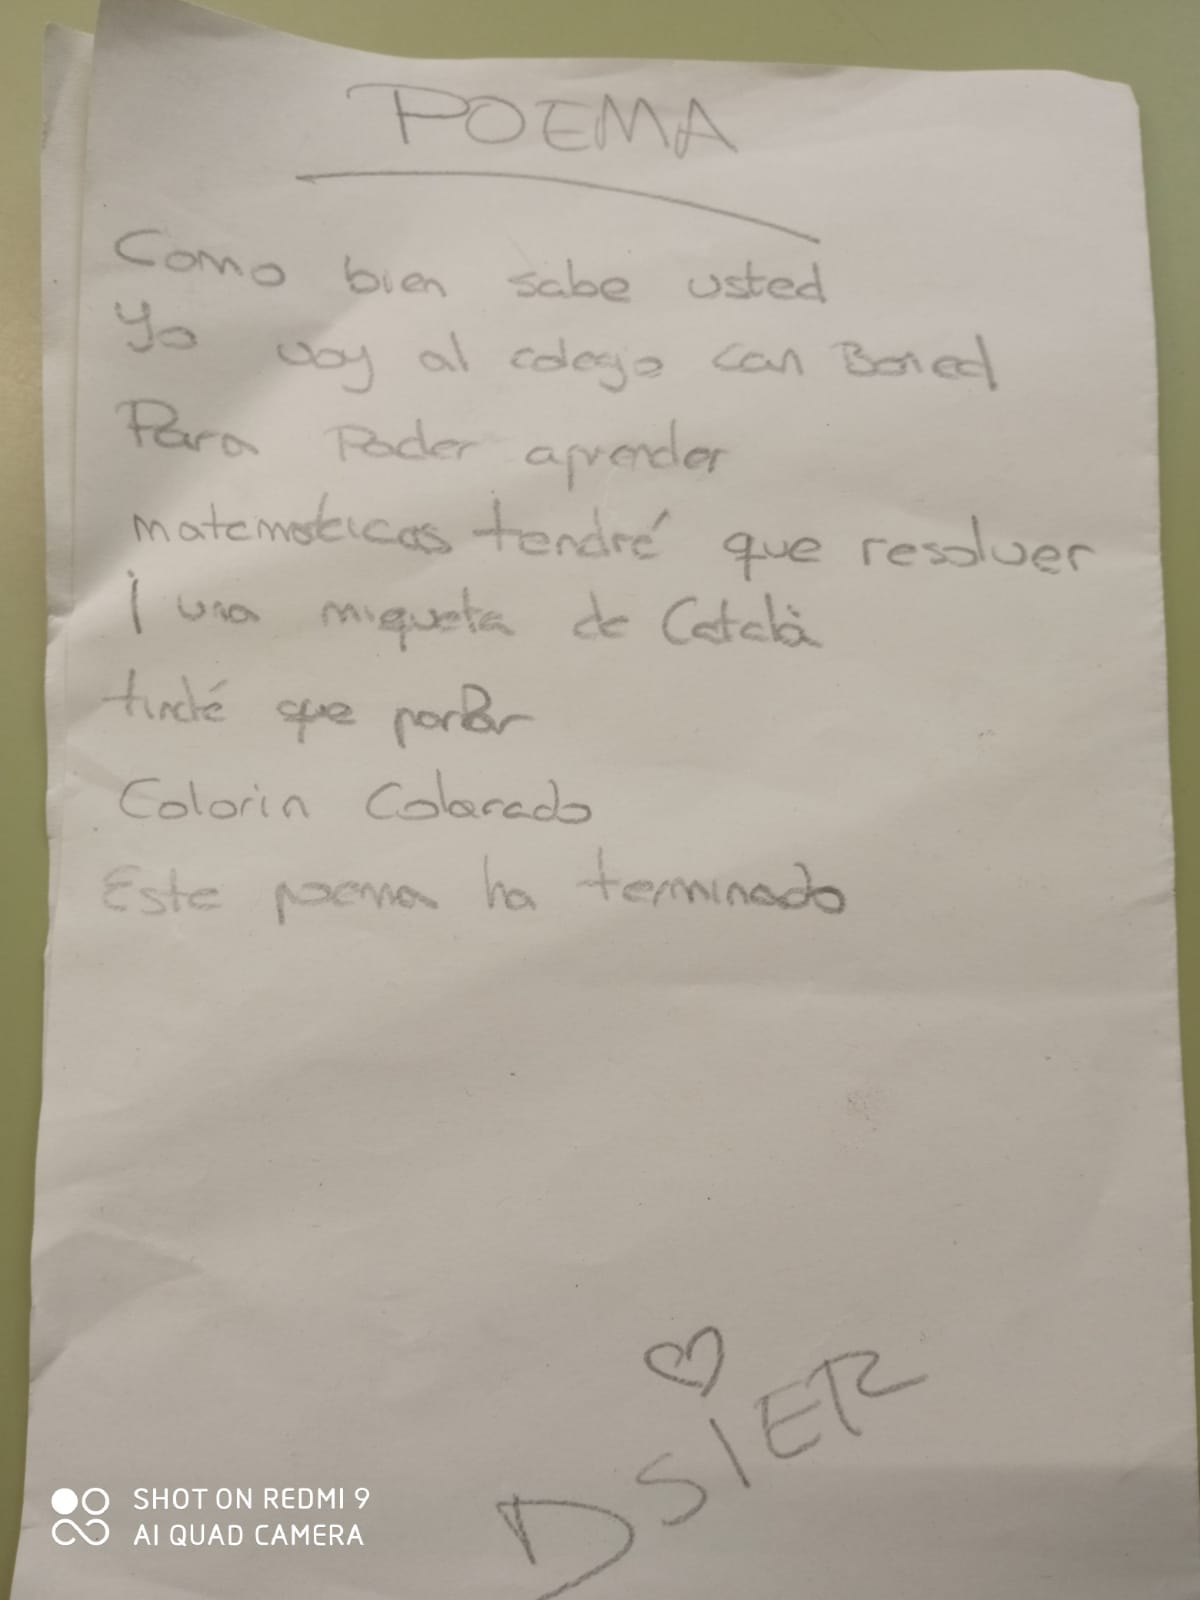 POEMA
Como bien sabe usted
Yo voy al colegio can Bored
Para Poder aprender
matematicas tendré que resolver
i una miqueta de Català
tindé que parlar
Colorin Colorado
Este poema ha terminado
DSIER
SHOT ON REDMI 9
AI QUAD CAMERA